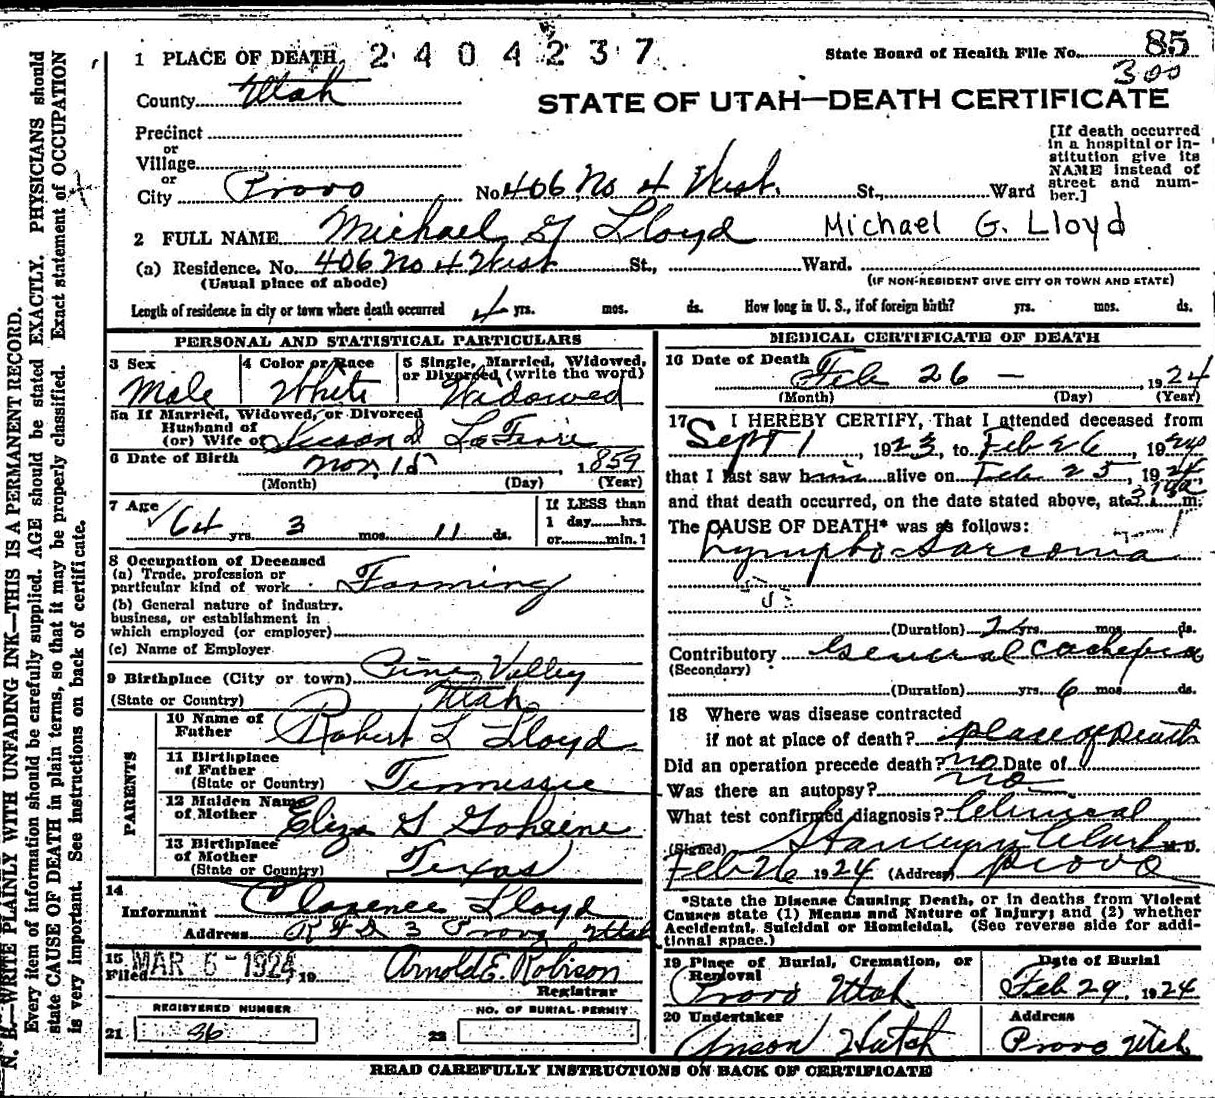 N. B.—WRITE PLAINLY WITH UNFADING INK—THIS IS A PERMANENT RECORD.
Every item of information should be carefully supplied. AGE should be stated EXACTLY. PHYSICIANS should
state CAUSE OF DEATH in plain terms, so that it may be properly classified. Exact statement of OCCUPATION
is very important. See instructions on back of certificate.
1 PLACE OF DEATH 2404237 State Board of Health File No. 85
300
County Utah STATE OF UTAH—DEATH CERTIFICATE
Precinct
or
Village
or
City Provo No. 406 No 4 West. St., Ward
[If death occurred
in a hospital or in-
stitution give its
NAME instead of
street and num-
ber.]
2 FULL NAME Michael G Lloyd Michael G. Lloyd
(a) Residence. No. 406 No 4 West St., Ward.
(Usual place of abode) (IF NON-RESIDENT GIVE CITY OR TOWN AND STATE)
Length of residence in city or town where death occurred 4 yrs. mos. ds. How long in U. S., if of foreign birth? yrs. mos. ds.
PERSONAL AND STATISTICAL PARTICULARS
3 Sex 4 Color or Race 5 Single, Married, Widowed,
or Divorced (write the word)
Male White Widowed
5a If Married, Widowed, or Divorced
Husband of
(or) Wife of Susan
6 Date of Birth Nov, 15 1859
(Month) (Day) (Year)
7 Age 64 yrs. 3 mos. 11 ds.
If LESS than
1 day hrs.
or min. ?
8 Occupation of Deceased
(a) Trade, profession or
particular kind of work Farming
(b) General nature of industry,
business, or establishment in
which employed (or employer)
(c) Name of Employer
9 Birthplace (City or town) Pine Valley
(State or Country) Utah
PARENTS
10 Name of
Father Robert L Lloyd
11 Birthplace
of Father
(State or Country) Tennessee
12 Maiden Name
of Mother Eliza G Goheene
13 Birthplace
of Mother
(State or Country) Texas
14
Informant Clarence Lloyd
Address R F D 3 Provo Utah
15
Filed MAR 6 - 1924, 19 Arnold E. Robison
Registrar
REGISTERED NUMBER NO. OF BURIAL PERMIT
21 36 22
MEDICAL CERTIFICATE OF DEATH
16 Date of Death
Feb 26 — , 1924
(Month) (Day) (Year)
17 I HEREBY CERTIFY, That I attended deceased from
Sept 1, 1923, to Feb 26, 1924
that I last saw him alive on Feb 25, 1924
and that death occurred, on the date stated above, at m.
The CAUSE OF DEATH* was as follows:
Lympho Sarcoma
(Duration) 2 yrs. mos. ds.
Contributory General Cachexia
(Secondary)
(Duration) yrs. 6 mos. ds.
18 Where was disease contracted
if not at place of death? place of Death
Did an operation precede death? no Date of
Was there an autopsy? no
What test confirmed diagnosis? Clinical
(Signed) Clark M. D.
Feb 26 1924 (Address) Provo
*State the Disease Causing Death, or in deaths from Violent
Causes state (1) Means and Nature of Injury; and (2) whether
Accidental, Suicidal or Homicidal. (See reverse side for addi-
tional space.)
19 Place of Burial, Cremation, or
Removal Date of Burial
Provo Utah Feb 29, 1924
20 Undertaker Address
Anson Hatch Provo Utah
READ CAREFULLY INSTRUCTIONS ON BACK OF CERTIFICATE